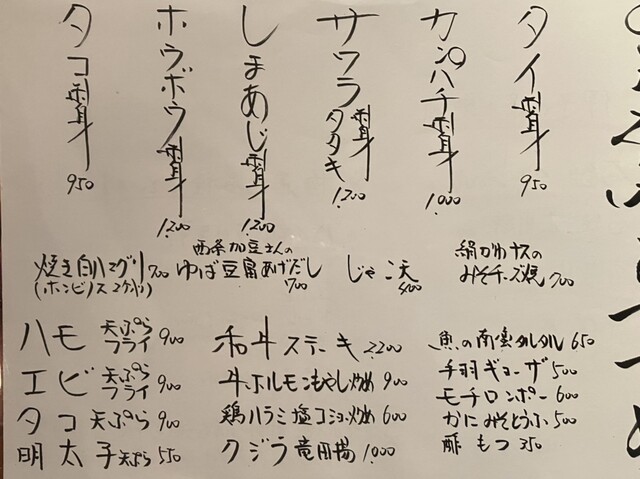 タイ刺身 950
カンパチ刺身 1,000
サワラ刺身 タタキ 1,200
しまあじ刺身 1,200
ホウボウ刺身 1,200
タコ刺身 950
絹かわナスの
みそチーズ焼 700
じゃこ天 400
西条加豆さんの
ゆば豆腐あげだし
700
焼き白ハマグリ 700
(ホンビノス 2ケ付)
ハモ 天ぷら フライ 900
エビ 天ぷら フライ 900
タコ 天ぷら 900
明太子 天ぷら 550
和牛ステーキ 2,200
牛ホルモンもやし炒め 900
鶏ハラミ塩コショー炒め 600
クジラ竜田揚 1,000
魚の南蛮タルタル 650
手羽ギョーザ 500
モチロンポー 600
かにみそとうふ 500
酢もつ 350